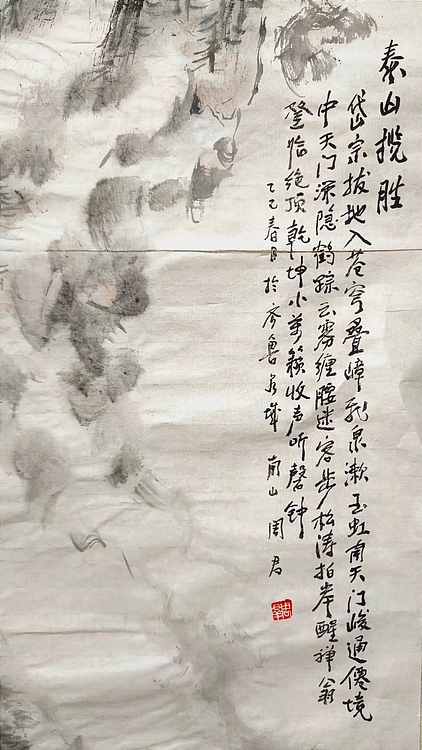 泰山揽胜
岱宗拔地入苍穹叠嶂飞泉漱玉虹南天门峻通仙境
中天门深隐鹤踪云雾缠腰迷客步松涛拍岸醒禅翁
登临绝顶乾坤小万籁收声听磬钟
乙巳春月于齐鲁泉城 南山周君